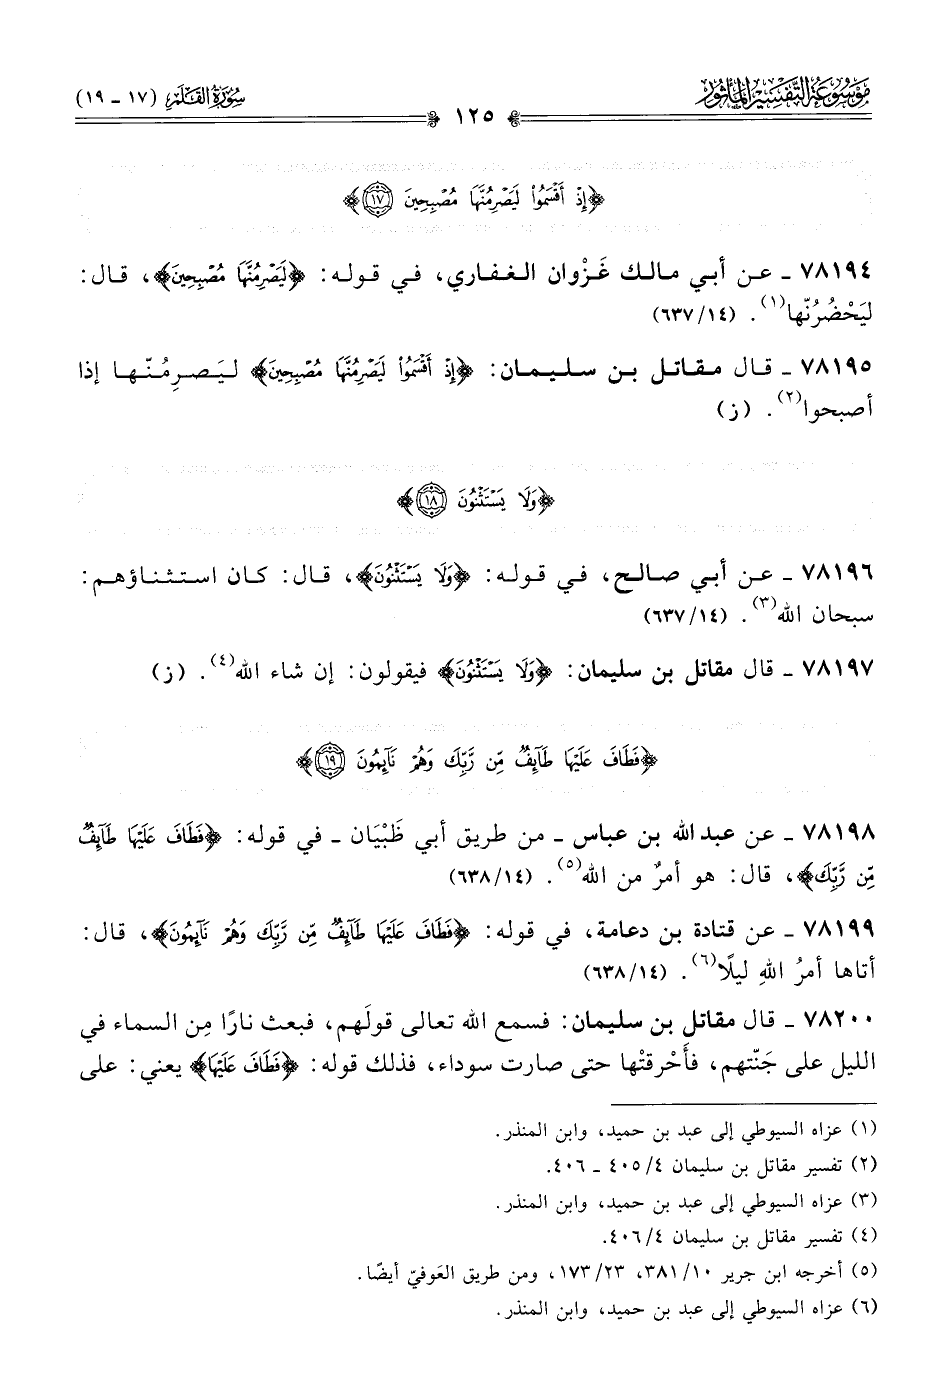 موسوعة التفسير المأثور
سورة القلم (١٧ - ١٩)
١٢٥
﴿إِذْ أَقْسَمُوا۟ لَيَصْرِمُنَّهَا مُصْبِحِينَ ١٧﴾
٧٨١٩٤ - عن أبي مالك غَزْوان الغفاري، في قوله: ﴿لَيَصْرِمُنَّهَا مُصْبِحِينَ﴾، قال:
ليَحْضُرُنّها(١). (١٤/ ٦٣٧)
٧٨١٩٥ - قال مقاتل بن سليمان: ﴿إِذْ أَقْسَمُوا۟ لَيَصْرِمُنَّهَا مُصْبِحِينَ﴾ ليَصرِمُنّها إذا
أصبحوا(٢). (ز)
﴿وَلَا يَسْتَثْنُونَ ١٨﴾
٧٨١٩٦ - عن أبي صالح، في قوله: ﴿وَلَا يَسْتَثْنُونَ﴾، قال: كان استثناؤهم:
سبحان الله(٣). (١٤/ ٦٣٧)
٧٨١٩٧ - قال مقاتل بن سليمان: ﴿وَلَا يَسْتَثْنُونَ﴾ فيقولون: إن شاء الله(٤). (ز)
﴿فَطَافَ عَلَيْهَا طَآئِفٌ مِّن رَّبِّكَ وَهُمْ نَآئِمُونَ ١٩﴾
٧٨١٩٨ - عن عبد الله بن عباس - من طريق أبي ظَبْيَان - في قوله: ﴿فَطَافَ عَلَيْهَا طَآئِفٌ
مِّن رَّبِّكَ﴾، قال: هو أمرٌ من الله(٥). (١٤/ ٦٣٨)
٧٨١٩٩ - عن قتادة بن دعامة، في قوله: ﴿فَطَافَ عَلَيْهَا طَآئِفٌ مِّن رَّبِّكَ وَهُمْ نَآئِمُونَ﴾، قال:
أتاها أمرُ اللهِ ليلًا(٦). (١٤/ ٦٣٨)
٧٨٢٠٠ - قال مقاتل بن سليمان: فسمع الله تعالى قولَهم، فبعث نارًا مِن السماء في
الليل على جَنّتهم، فأَحْرقتْها حتى صارت سوداء، فذلك قوله: ﴿فَطَافَ عَلَيْهَا﴾ يعني: على
(١) عزاه السيوطي إلى عبد بن حميد، وابن المنذر.
(٢) تفسير مقاتل بن سليمان ٤/ ٤٠٥ - ٤٠٦.
(٣) عزاه السيوطي إلى عبد بن حميد، وابن المنذر.
(٤) تفسير مقاتل بن سليمان ٤/ ٤٠٦.
(٥) أخرجه ابن جرير ١٠/ ٣٨١، ٢٣/ ١٧٣، ومن طريق العَوفيّ أيضًا.
(٦) عزاه السيوطي إلى عبد بن حميد، وابن المنذر.